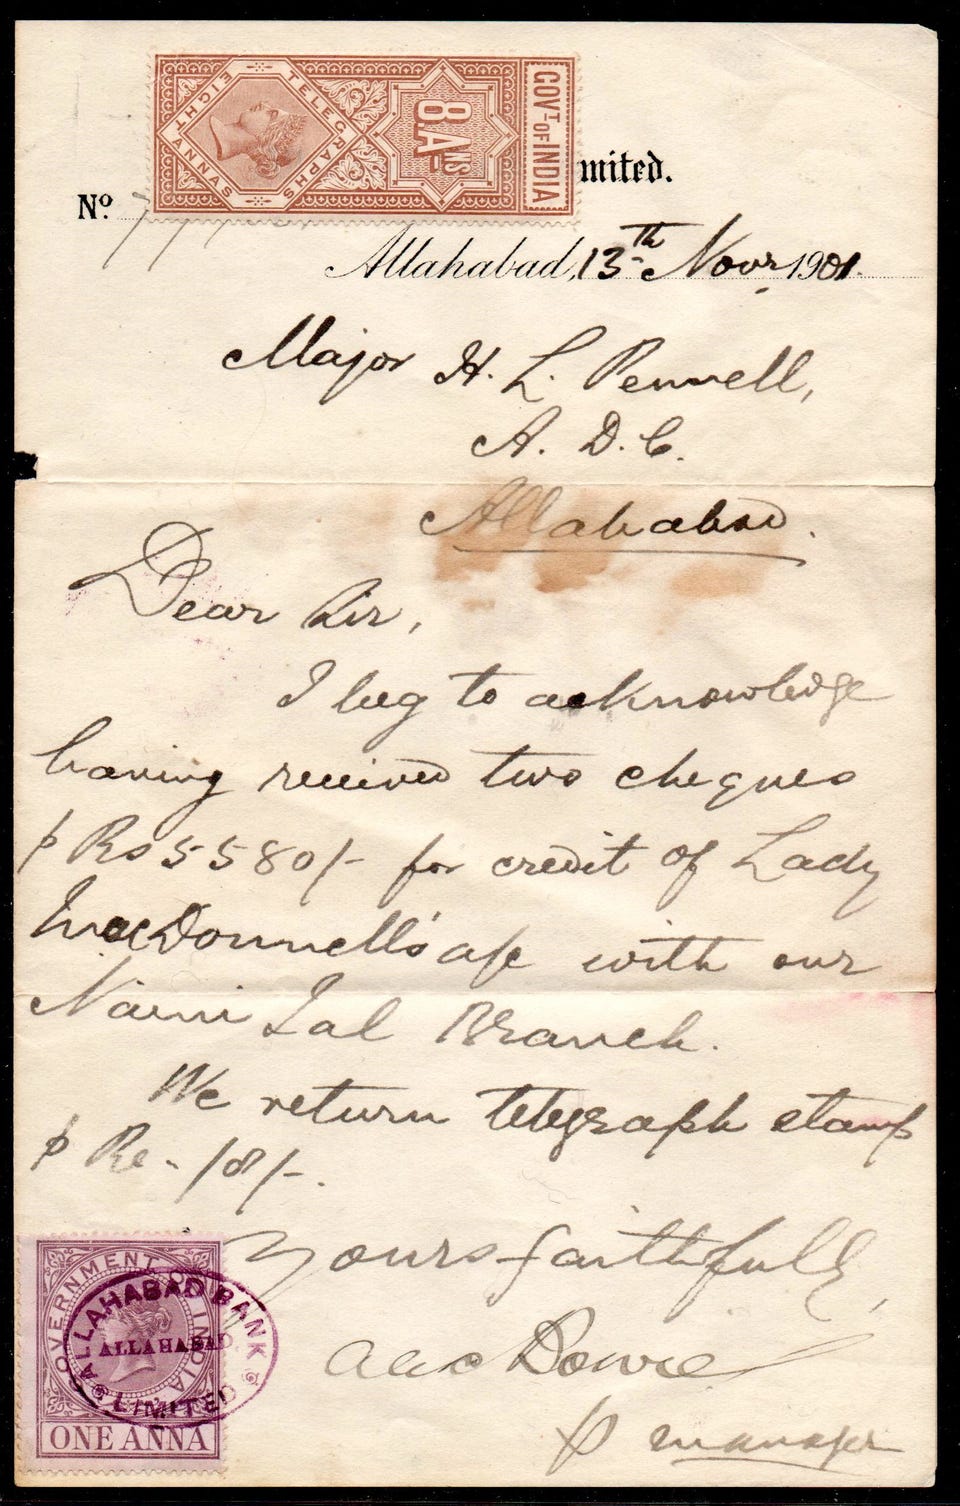 GOVT OF INDIA
8 ANS
TELEGRAPHS
EIGHT ANNAS
mited.
No.
Allahabad, 13th Novr 1901.
Major H. L. Pennell,
A. D. C.
Allahabad.
Dear Sir,
I beg to acknowledge
having received two cheques
p Rs 5580/- for credit of Lady
MacDonnell's a/c with our
Naini Tal Branch.
We return telegraph stamp
p Re. -/8/-.
Yours faithfully,
p manager
GOVERNMENT OF INDIA
ALLAHABAD BANK
ALLAHABAD
LIMITED
ONE ANNA